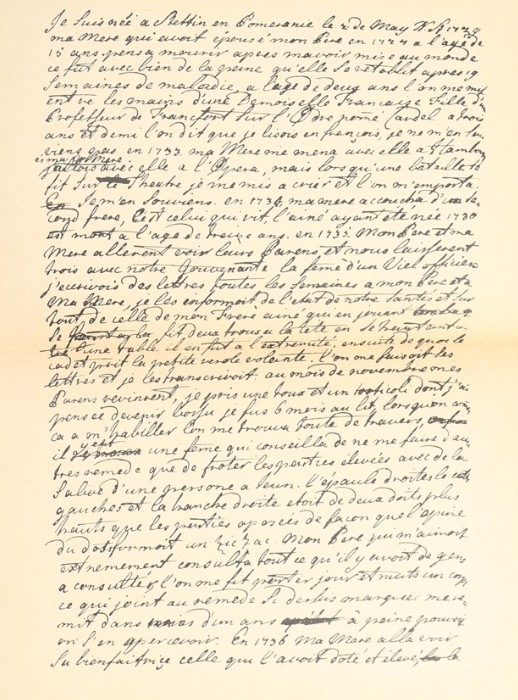 Je suis née a Stettin en Pomeranie le 2 de May N. St. 1729
ma Mere qui avoit epousé mon Pere en 1727 a l'age de
15 ans, pensa mourir apres m'avoir mise au monde
ce fut avec bien de la peine qu'elle se retablit apres 19
semaines de maladie, a l'age de deux ans l'on me mit
entre les mains d'une Francaise fille d'un
Professeur de Francfort sur l'Odre nomé Cardel a trois
ans et demi l'on dit que je lisois en françois, je ne m'en sou
viens pas en 1733. ma Mere me mena avec elle a Hambourg
ma Mere
j'allois avec elle a l'Opera, mais lorsqu'une bataille se
fit sur le theatre je me mis a crier et l'on m'emporta.
Je m'en souviens. en 1734 ma mere accoucha d'un se
cond frere, c'est celui qui vit. l'ainé ayant eté né en 1730
est mort a l'age de treize ans. en 1735. Mon Pere et ma
Mere allerent voir leurs Parens et nous laisserent
trois avec notre Gouvernante la feme d'un Viel officier
j'ecrivois des lettres toutes les semaines a mon Pere et a
Ma Mere, je les informoit de l'etat de notre santés et sur
tout de celle de mon Frere ainé qui en jouant
se fit deux trous a la tete en se heurtant
a une table. il en fut a l'extremité, ensuite de quoi le
cadet prit la petite verole volante. l'on me faisoit les
lettres et je les transcrivoit. au mois de novembre mes
Parens revinrent, je pris une toux et un dont j'ai
pensée devenir je fus 6 mois au lit, lorsqu'on
ça a m'habiller l'on me trouva toute de travers,
il y eut une feme qui conseilla de ne me faire d'au
tres remede que de froter les parties elevées avec de la
salive d'une personne a jeun. l'epaule droite, le coté
gauches et la hanche droite etoit de deux doits plus
hauts que les parties oposées de façon que l'epine
du dos formoit un ziczac. Mon Pere qui m'aimoit
extrememement consulta tout ce qu'il y avoit de gens
a consulter, l'on me fit porter jour et nuits un cor
ce qui joint au remede si dessus marquer me re
mit dans d'un ans a peine pouvoit
on s'en apercevoir. En 1736 Ma Mere alla voir
sa bienfaitrice celle qui l'avoit doté et elevé, la